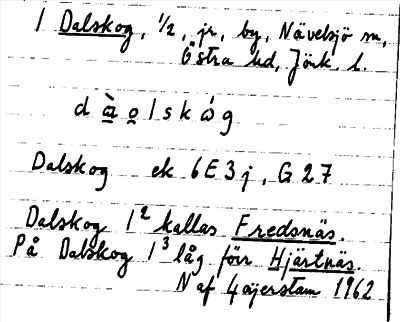 1 Dalskog, 1/2, jr, by, Nävelsjö sn,
Östra hd, Jönk. l.
d a̠̋ o̠ l s k ó g
Dalskog ek 6E3j, G27
Dalskog 1² kallas Fredsnäs.
På Dalskog 1³ låg förr Hjärtnäs.
N af Geijerstam 1962